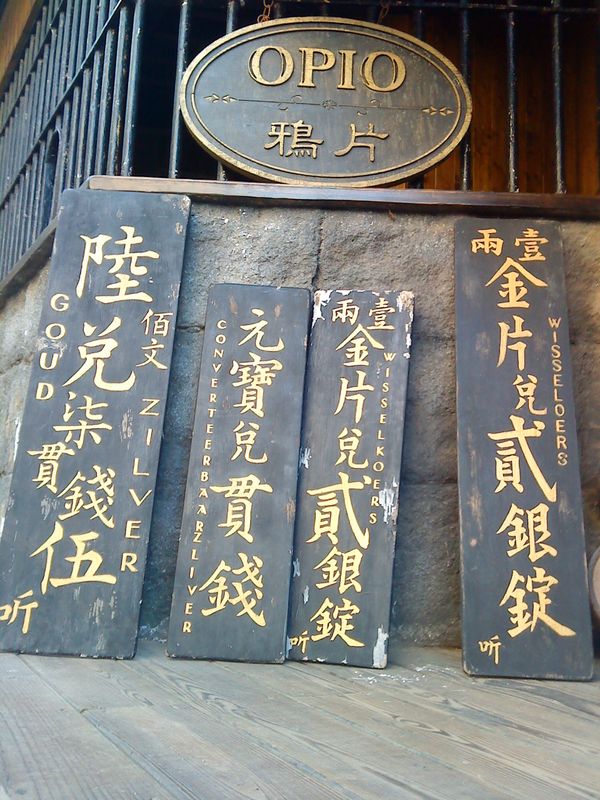 OPIO
鴉片
GOUD
陸佰文兌柒貫錢伍
ZILVER
听
CONVERTEERBAARZLIVER
元寶兌貫錢
壹兩
金片兌貳銀錠
WISSELKOERS
听
壹兩
金片兌貳銀錠
WISSELOERS
听